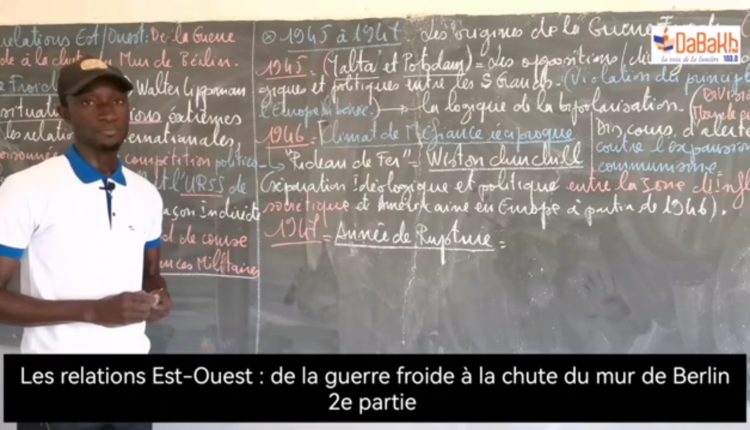 relations Est/Ouest: De la Guerre
à la chute Mur de Berlin.
Froide Walter Lippman
situation extrêmes
les relations internationales,
compétition
et l'URSS de
façon Indirecte
de course
Militaires
1945 à 1947: Les origines de la Guerre
1945 = (Yalta et Potsdam) = Les oppositions
giques et politiques entre les 3 Grands. (Violation de principe
l'Europe → la logique de la bipolarisation.
1946 = Climat de Méfiance réciproque
Discours d'alerte
contre l'expansion
communisme =
→ "Rideau de Fer" = Wiston churchill
(séparation Idéologique et politique entre la zone d'infl
soviétique et Américaine en Europe à partir de 1946).
1947 = Année de Rupture =
DaBaKh
la voix de la lumière 103.0
Les relations Est-Ouest : de la guerre froide à la chute du mur de Berlin
2e partie